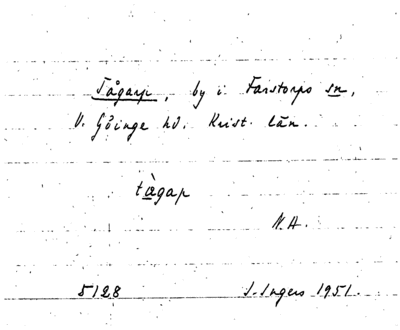 Tågarp, by i Farstorps sn,
V. Göinge hd. Krist. län.
tàgap
N.A.
5128 I. Ingers 1951.